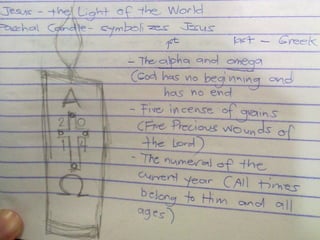 Jesus - the Light of the World
Paschal Candle - symbolizes Jesus
1st last - Greek
- The alpha and omega
(God has no beginning and
has no end
- Five incense of grains
(Five Precious wounds of
the Lord)
- The numeral of the
current year (All times
belong to Him and all
ages)
A
2 0
1
Ω